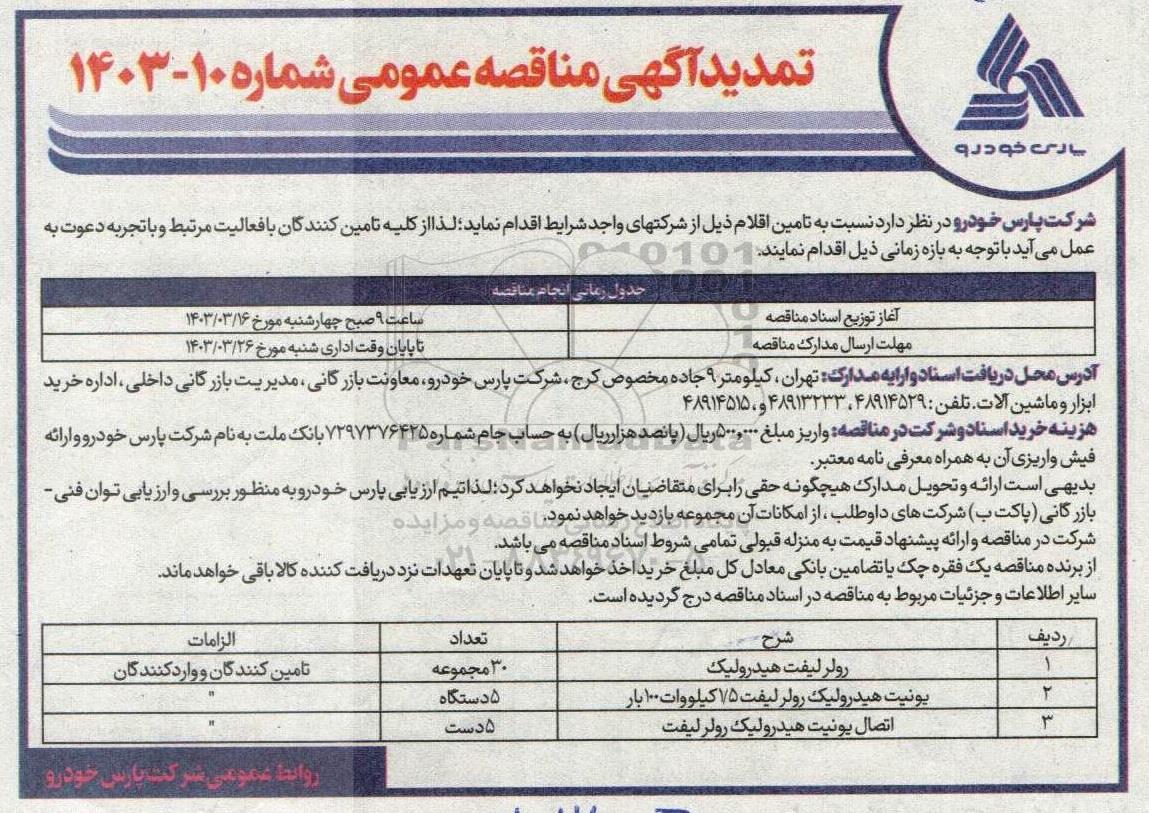 تمدید آگهی مناقصه عمومی شماره ۱۰-۱۴۰۳
پارس خودرو
شرکت پارس خودرو در نظر دارد نسبت به تامین اقلام ذیل از شرکتهای واجد شرایط اقدام نماید؛ لذا از کلیه تامین کنندگان با فعالیت مرتبط و با تجربه دعوت به
عمل می آید با توجه به بازه زمانی ذیل اقدام نمایند.
جدول زمانی انجام مناقصه
آغاز توزیع اسناد مناقصه ساعت ۹ صبح چهارشنبه مورخ ۱۴۰۳/۰۳/۱۶
مهلت ارسال مدارک مناقصه تا پایان وقت اداری شنبه مورخ ۱۴۰۳/۰۳/۲۶
آدرس محل دریافت اسناد و ارایه مدارک: تهران، کیلومتر ۹ جاده مخصوص کرج، شرکت پارس خودرو، معاونت بازرگانی، مدیریت بازرگانی داخلی، اداره خرید
ابزار و ماشین آلات. تلفن: ۴۸۹۱۴۵۲۹، ۴۸۹۱۳۲۳۳ و ۴۸۹۱۴۵۱۵،
هزینه خرید اسناد و شرکت در مناقصه: واریز مبلغ ۵۰۰,۰۰۰ ریال (پانصد هزار ریال) به حساب جام شماره ۷۲۹۷۳۷۶۴۲۵ بانک ملت به نام شرکت پارس خودرو و ارائه
فیش واریزی آن به همراه معرفی نامه معتبر.
بدیهی است ارائه و تحویل مدارک هیچگونه حقی را برای متقاضیان ایجاد نخواهد کرد؛ لذا تیم ارزیابی پارس خودرو به منظور بررسی و ارزیابی توان فنی -
بازرگانی (پاکت ب) شرکت های داوطلب، از امکانات آن مجموعه بازدید خواهد نمود.
شرکت در مناقصه و ارائه پیشنهاد قیمت به منزله قبولی تمامی شروط اسناد مناقصه می باشد.
از برنده مناقصه یک فقره چک یا تضامین بانکی معادل کل مبلغ خرید اخذ خواهد شد و تا پایان تعهدات نزد دریافت کننده کالا باقی خواهد ماند.
سایر اطلاعات و جزئیات مربوط به مناقصه در اسناد مناقصه درج گردیده است.
ردیف شرح تعداد الزامات
۱ رولر لیفت هیدرولیک ۳۰ مجموعه تامین کنندگان و واردکنندگان
۲ یونیت هیدرولیک رولر لیفت ۱/۵ کیلووات ۱۰۰ بار ۵ دستگاه "
۳ اتصال یونیت هیدرولیک رولر لیفت ۵ دست "
روابط عمومی شرکت پارس خودرو
ParsNamadData